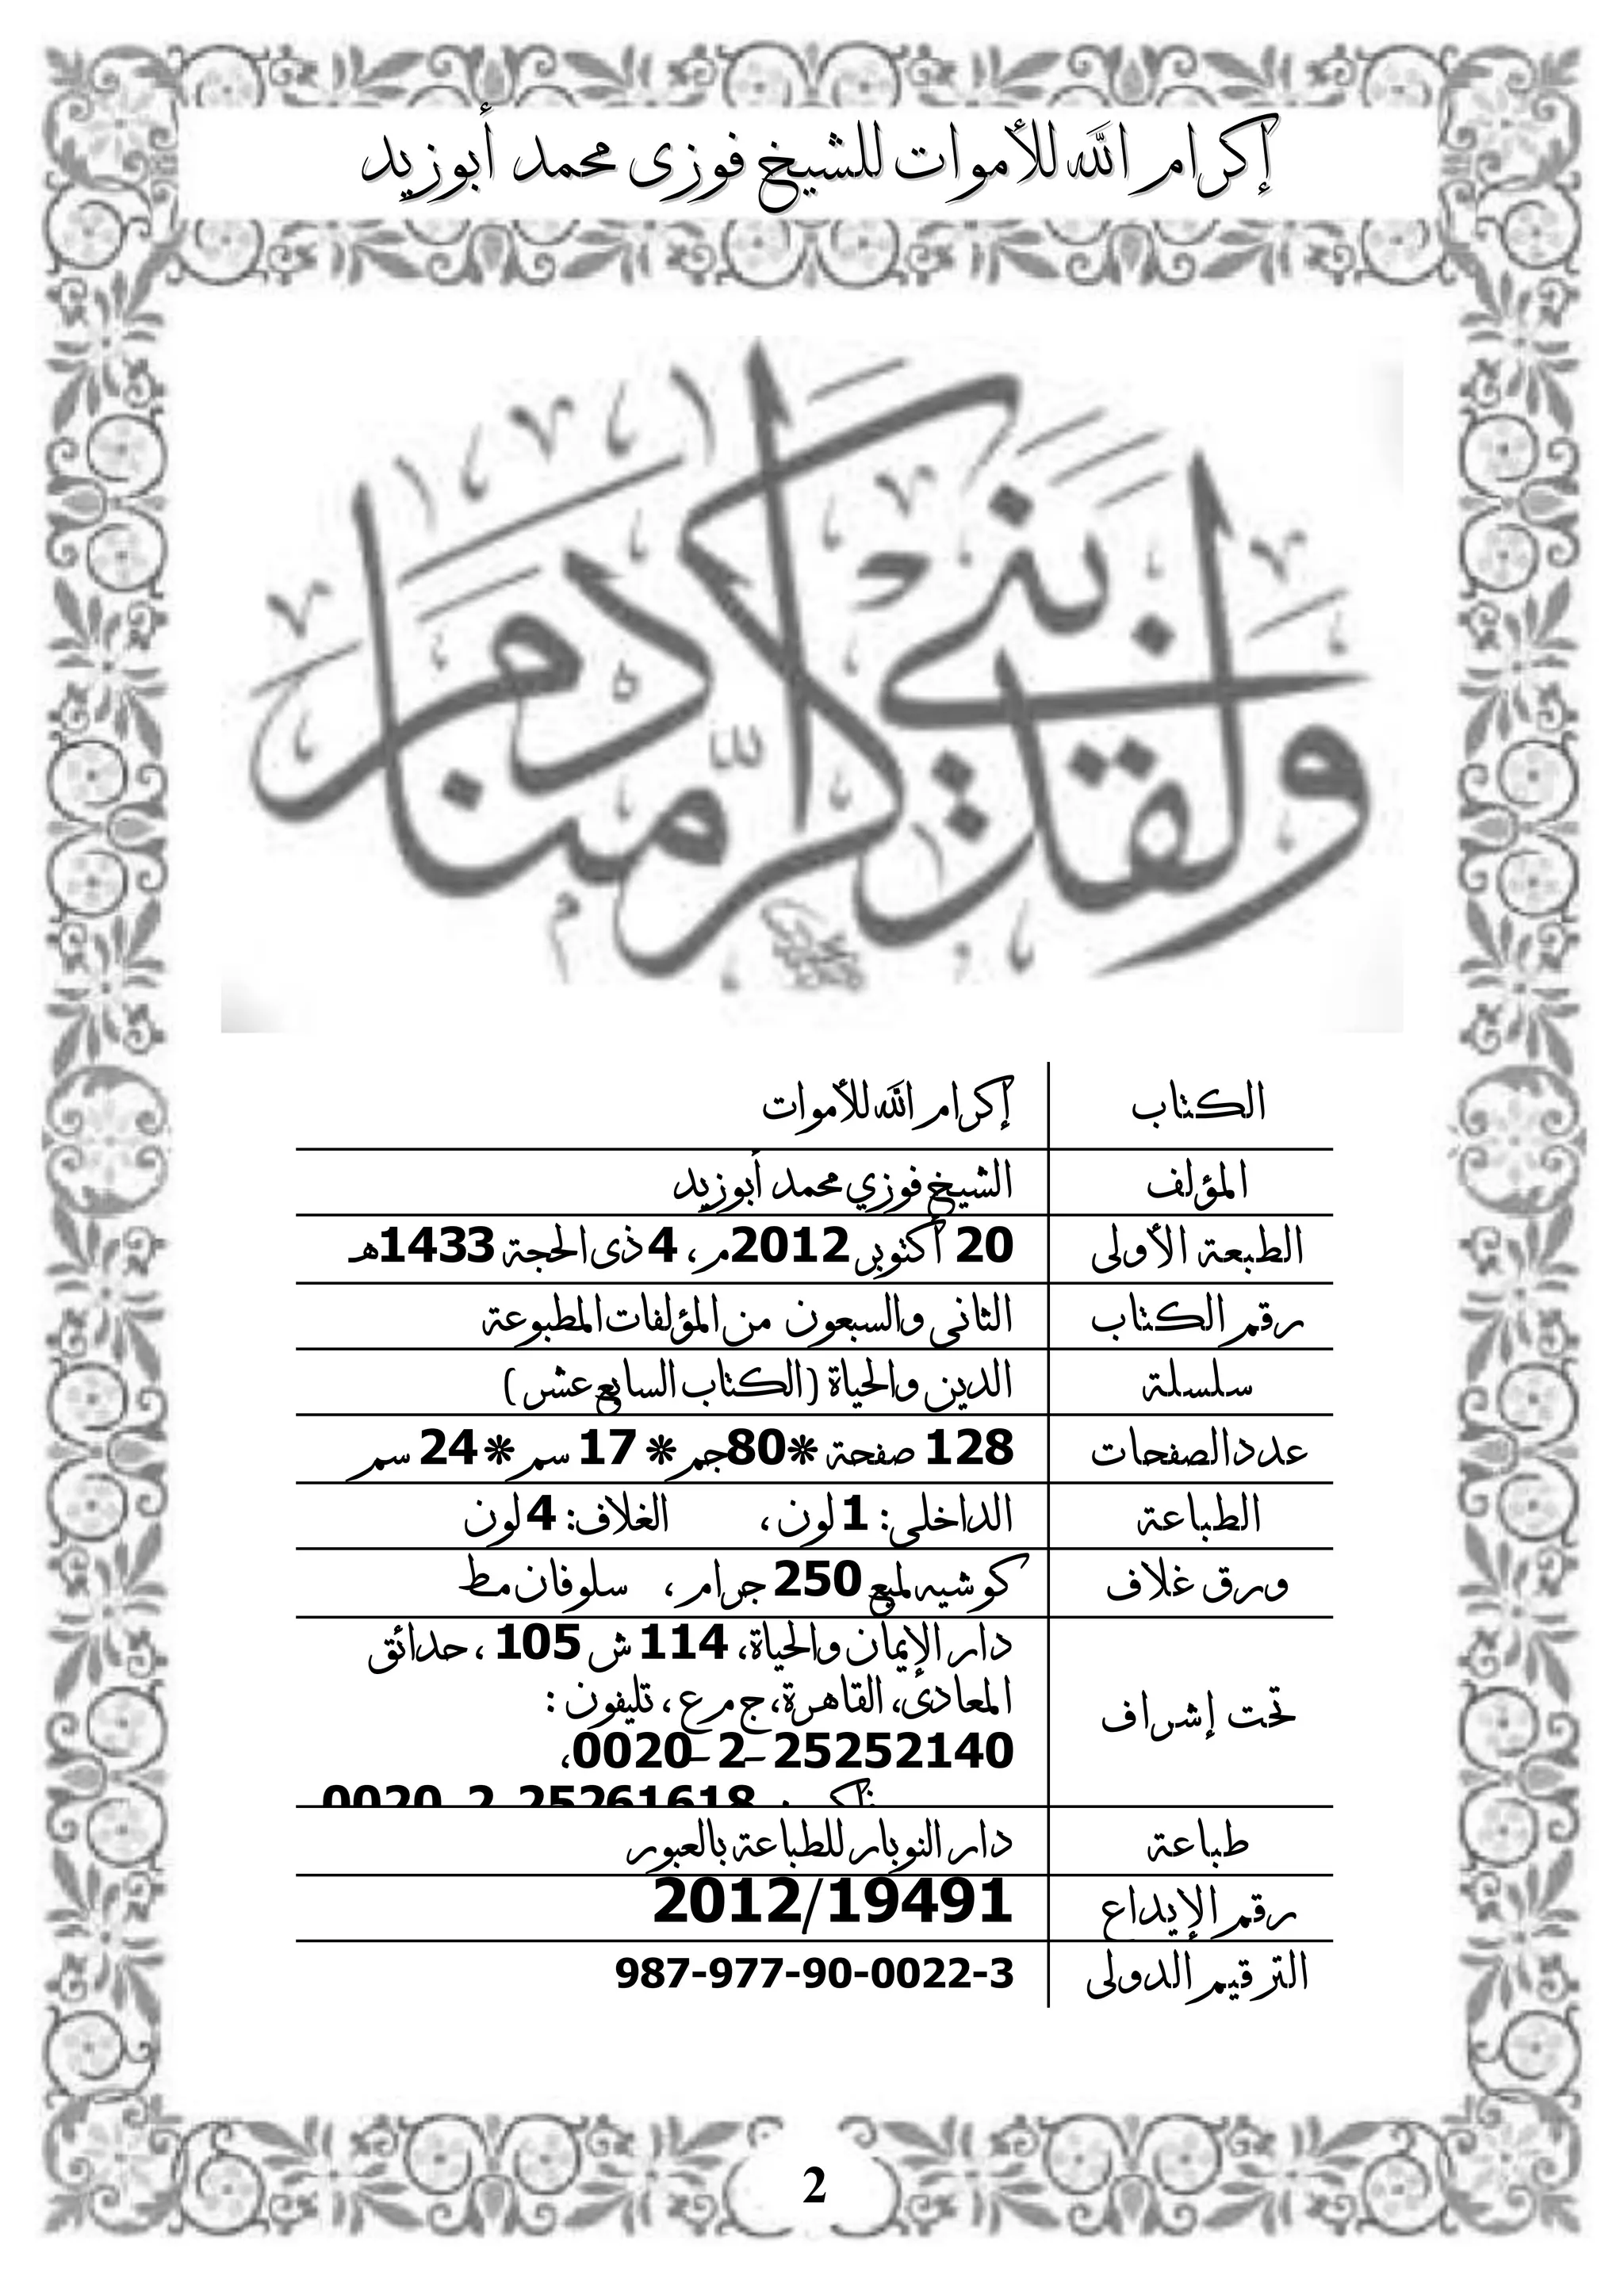 إكرام الله للأموات للشيخ فوزى محمد أبوزيد
ولقد كرمنا بني آدم
الكتاب إكرام الله للأموات
المؤلف الشيخ فوزي محمد أبوزيد
الطبعة الأولى 20 أكتوبر 2012م، 4 ذى الحجة 1433هـ
رقم الكتاب الثانى والسبعون من المؤلفات المطبوعة
سلسلة الدين والحياة (الكتاب السابع عشر)
عدد الصفحات 128 صفحة *80جم* 17 سم* 24 سم
الطباعة الداخلى: 1 لون، الغلاف: 4 لون
ورق غلاف كوشيه لميع 250 جرام، سلوفان مط
تحت إشراف دار الإيمان والحياة، 114 ش 105 ، حدائق
المعادى، القاهرة، ج م ع ، تليفون :
0020-2-25252140،
فاكس: 0020-2-25261618
طباعة دار النوبار للطباعة بالعبور
رقم الإيداع 2012/19491
الترقيم الدولى 987-977-90-0022-3
2